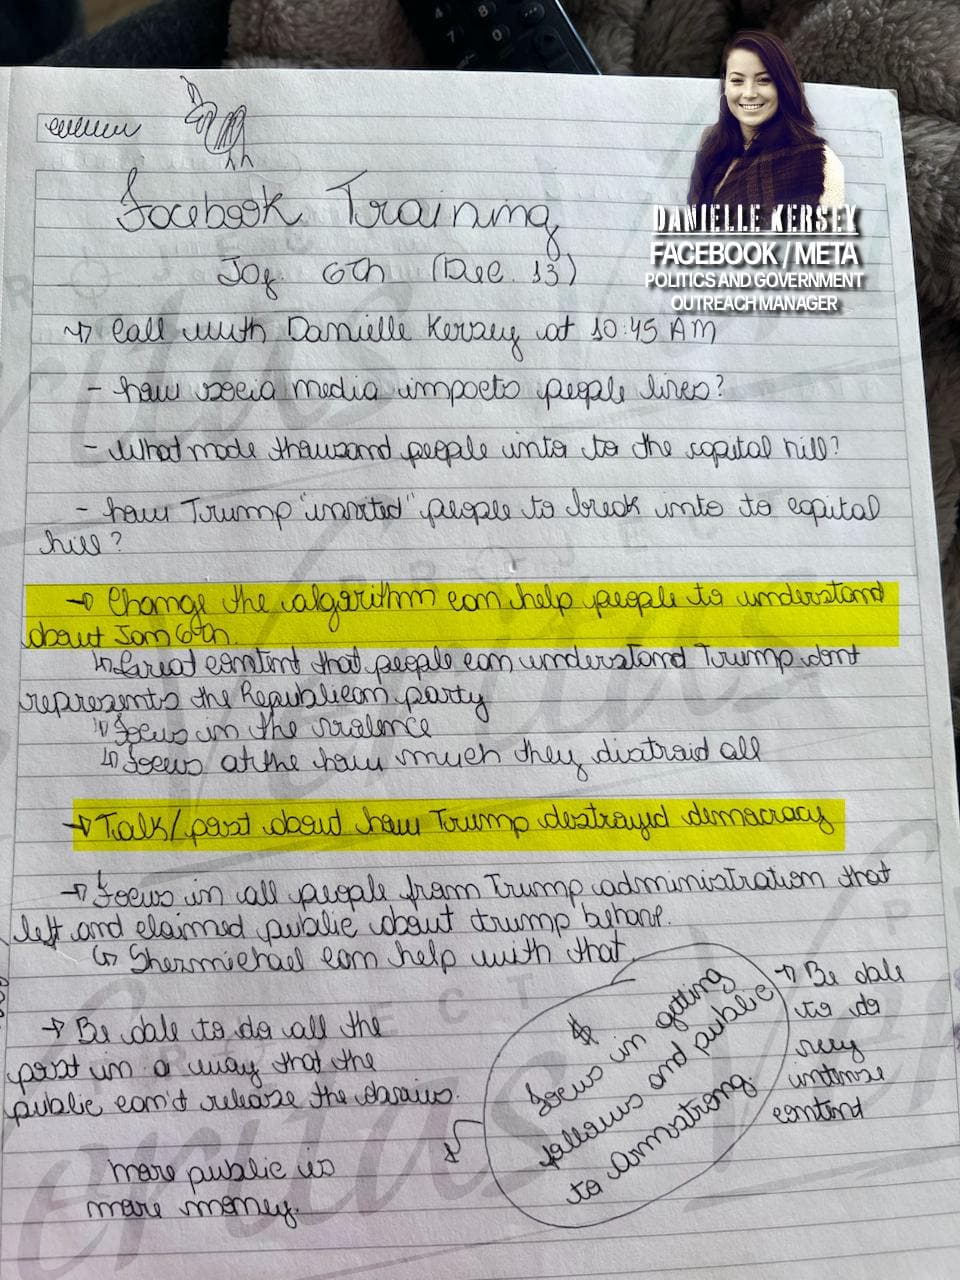 DANIELLE KERSEY
FACEBOOK / META
POLITICS AND GOVERNMENT
OUTREACH MANAGER
Facebook Training
6th (Dec. 13)
Call with Danielle Kersey at 10:45 AM
- how socia media impacts people lives?
- What made thousand people into to the capital hill?
- how Trump "invited" people to break into to capital
hill?
→ Change the algorithm can help people to understand
about Jan 6th.
↳ Great content that people can understand Trump dont
represents the Republican party
↳ Focus in the violence
↳ Focus at the how much they distraid all
→ Talk/post about how Trump destroyed democracy
→ Focus in all people from Trump administration that
left and claimed public about trump behave.
↳ Shermichael can help with that
→ Be able to do all the
post in a way that the
public can't release the
more public is
more money.
$
Focus in getting
follows and public
to Armstrong.
→ Be able
to do
very
intense
content
PROJECT
Veritas